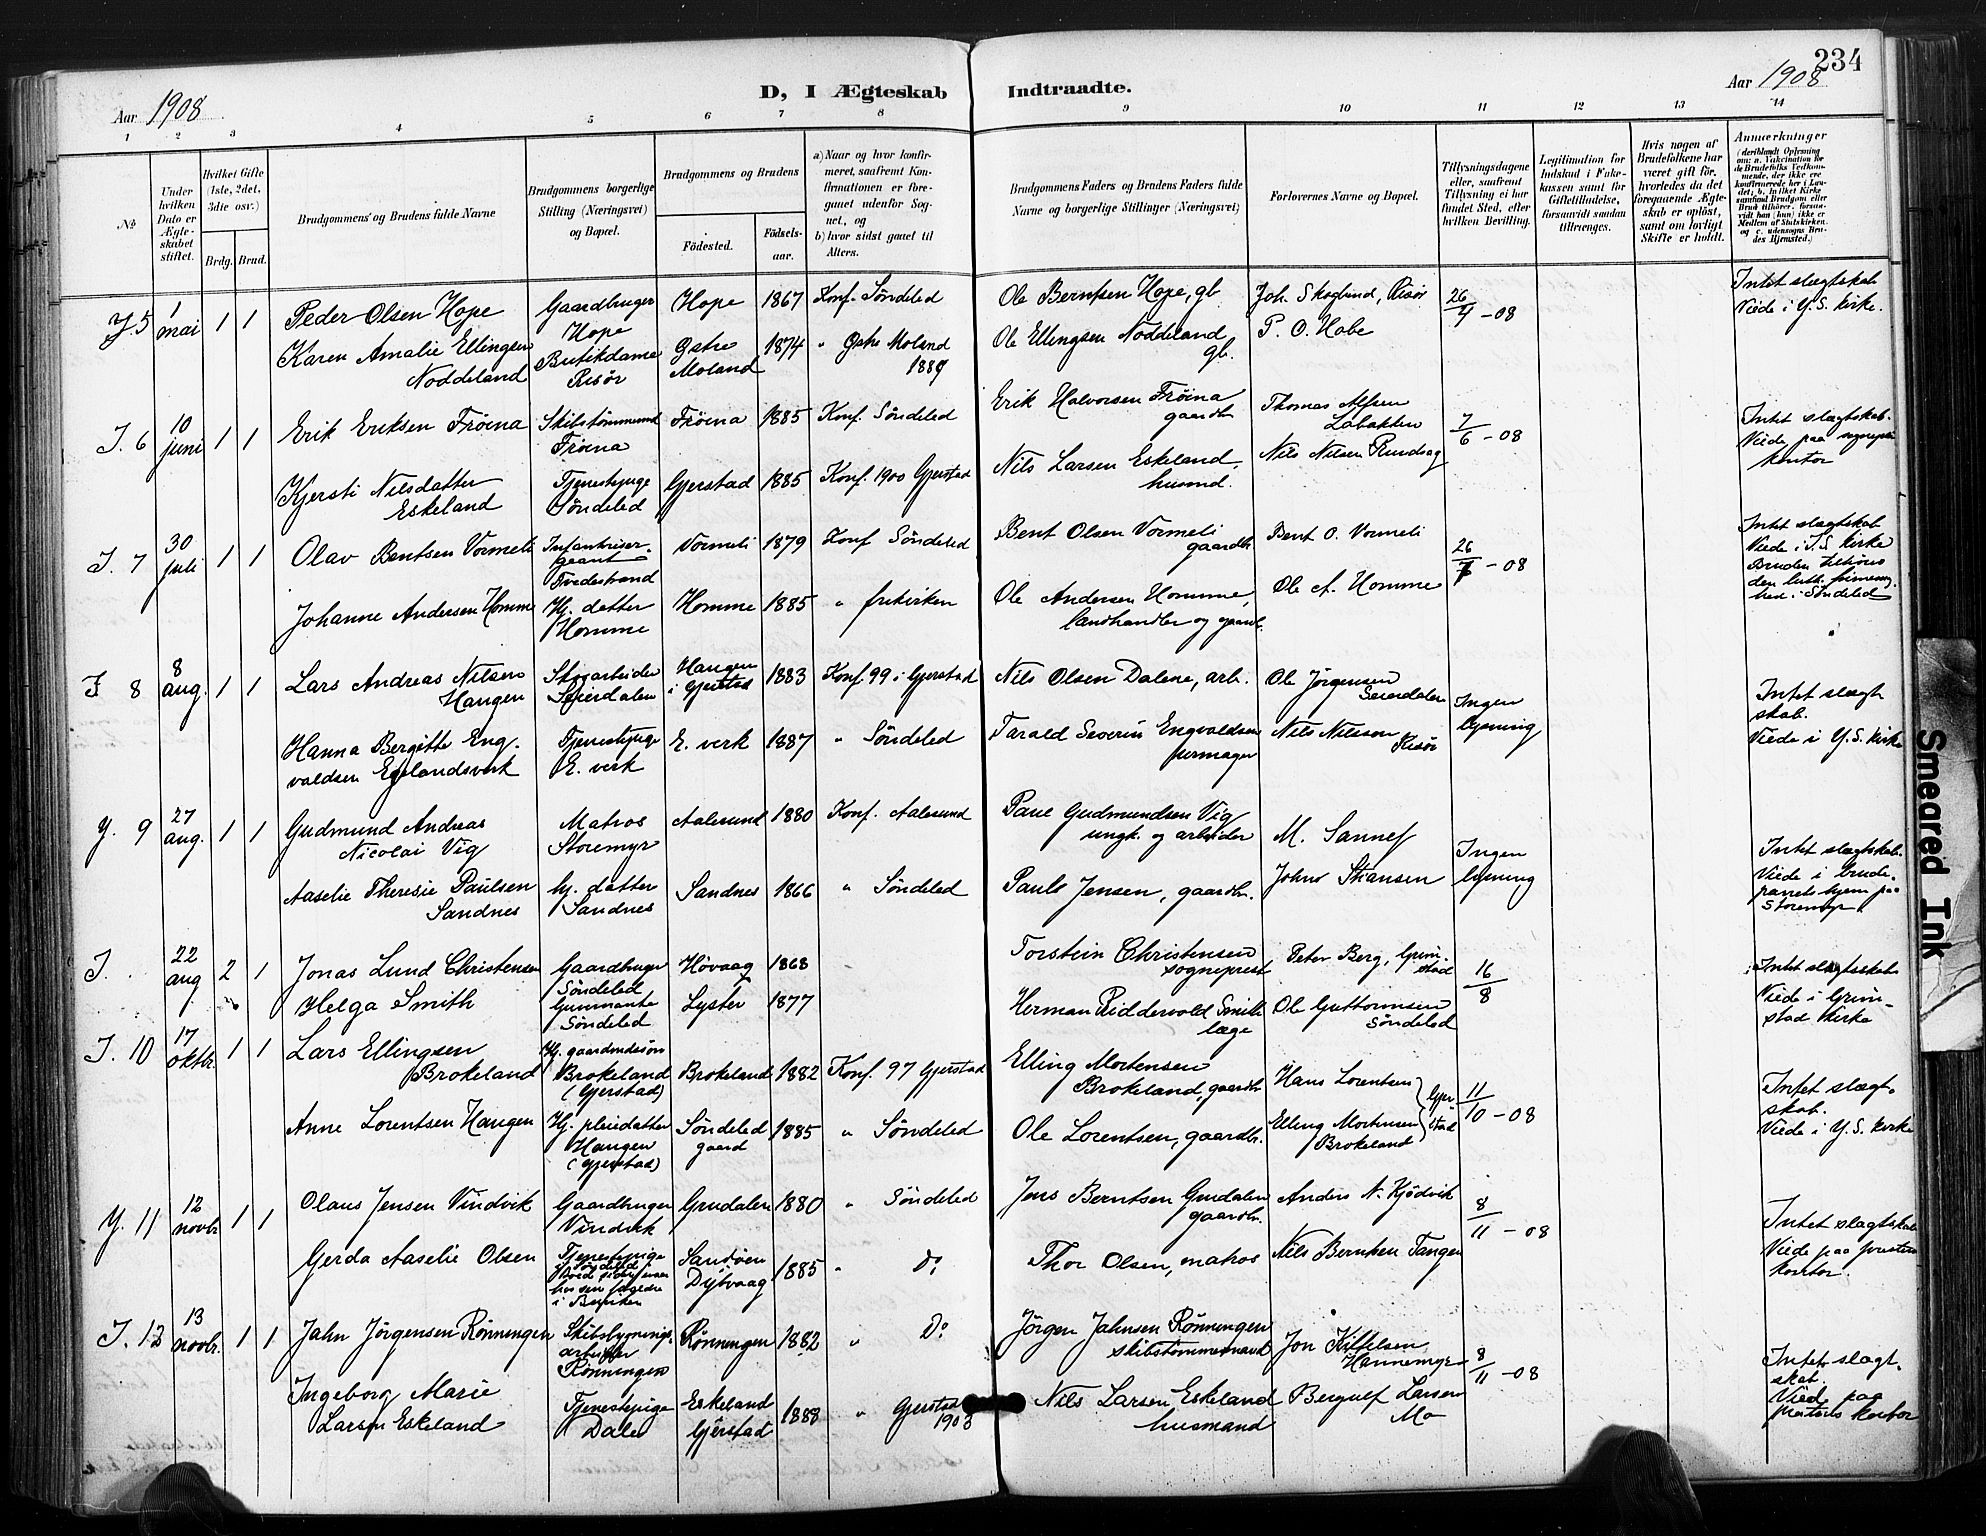 234
Aar 1908
D, I Ægteskab Indtraadte.
Aar 1908
1 2 3 4 5 6 7 8 9 10 11 12 13 14
№
Under hvilken Dato er Ægteskabet stiftet.
Hvilket Gifte (1ste, 2det, 3die osv.)
Brdg. Brud.
Brudgommens og Brudens fulde Navne
Brudgommens borgerlige Stilling (Næringsvei) og Bopæl.
Brudgommens og Brudens
Fødested.
Fødselsaar.
a) Naar og hvor konfirmeret, saafremt Konfirmationen er foregaaet udenfor Sognet, og
b) hvor sidst gaaet til Alters.
Brudgommens Faders og Brudens Faders fulde Navne og borgerlige Stillinger (Næringsvei)
Forlovernes Navne og Bopæl.
Tillysningsdagene eller, saafremt Tillysning ei har fundet Sted, efter hvilken Bevilling.
Legitimation for Indskud i Enkekassen samt for Giftetilladelse, forsaavidt saadan tiltrænges.
Hvis nogen af Brudefolkene har været gift før, hvorledes da det foregaaende Ægteskab er opløst, samt om lovligt Skifte er holdt.
Anmerkninger
Y. 5 1 mai 1 1
Peder Olsen Hope
Gaardbruger Hope
Hope 1867 Konf. Søndeled
Ole Berntsen Hope, gb.
Joh. Skoglund, Risør
26/4 - 08
Intet slægtskab
Viede i Y. S. kirke.
Karen Amalie Ellingsen Noddeland
Butikdame Risør
Østre Moland 1874 " Østre Moland 1889
Ole Ellingsen Noddeland gb.
P. O. Hobe
I. 6 10 juni 1 1
Erik Eriksen Frøina
Skibstømmermand Frøina
Frøina 1885 Konf. Søndeled
Erik Halvorsen Frøina gaardbr.
Thomas Alfsen Labakken
7/6 - 08
Intet slægtskab.
Viede paa sogneprs. kontor
Kjersti Nilsdatter Eskeland
Tjenestepige Søndeled
Gjerstad 1885 Konf. 1900 Gjerstad
Nils Larsen Eskeland, husmd.
Nils Nilsen Rundsag
I. 7 30 juli 1 1
Olav Bentsen Vormeli
Infanterisergeant Tvedestrand
Vormeli 1879 Konf Søndeled
Bent Olsen Vormeli gaardbr.
Bent O. Vormeli
26/7 - 08
Intet slægtskab
Viede i I. S. kirke
Bruden tilhører den luth. frimenighed i Søndeled
Johanne Andersen Homme
Hj. datter Homme
Homme 1885 " frikirken
Ole Andersen Homme, landhandler og gaardb.
Ole A. Homme
I 8 8 aug. 1 1
Lars Andreas Nilsen Haugen
Skogarbeider Seierdalen
Haugen i Gjerstad 1883 Konf. 99 i Gjerstad
Nils Olsen Dalene, arb.
Ole Jørgensen Seierdalen
Ingen lysning
Intet slægtskab.
Viede i Y. S. kirke
Hanna Bergitte Engvaldsen Egelandsverk
Tjenestepige E. verk
E. verk 1887 " Søndeled
Tarald Severin Engvaldsen formager
Nils Nilsson Risør
Y. 9 27 aug. 1 1
Gudmund Andreas Nicolai Vig
Matros Storemyr
Aalesund 1880 Konf. Aalesund
Paul Gudmundsen Vig ungk. og arbeider
M. Sannes
Ingen lysning
Intet slægtskab.
Viede i brudeparrets hjem paa Storemyr.
Aaselie Theresie Paulsen Sandnes
hj. datter Sandnes
Sandnes 1866 " Søndeled
Paul Jensen, gaardbr.
Johns Skansen
I. 22 aug 2 1
Jonas Lund Christensen
Gaardbruger Søndeled
Høvaag 1868
Torstein Christensen sogneprest
Peter Berg, Grimstad
16/8
Intet slægtskab
Viede i Grimstad kirke
Helga Smith
Guvernante Søndeled
Lyster 1877
Herman Riddervold Smith læge
Ole Guttormsen Søndeled
I. 10 17 oktbr. 1 1
Lars Ellingsen Brokeland
Hj. gaardmdssøn Brokeland (Gjerstad)
Brokeland 1882 Konf. 97 Gjerstad
Elling Mortensen Brokeland, gaardbr.
Hans Lorentsen
Gjerstad
11/10 - 08
Intet slægtskab.
Viede i Y. S. kirke
Anne Lorentsen Haugen
Hj. pleiedatter Haugen (Gjerstad)
Søndeled gaard 1885 " Søndeled
Ole Lorentsen, gaardbr.
Elling Mortensen Brokeland
Y. 11 12 novbr. 1 1
Olaus Jensen Vindvik
Gaardbruger Vindvik
Grudalen 1880 " Søndeled
Jens Berntsen Grudalen gaardbr.
Anders N. Kjødvik
8/11 - 08
Intet slægtskab
Viede paa prestens kontor.
Gerda Aaselie Olsen
Tjenestepige Søndeled
Sandøen Dybvaag 1885 " Do
Thor Olsen, matros
Nils Berntsen Tangen
I. 12 13 novbr. 1 1
Jahn Jörgensen Rønningen
Skibsbygningsarbeider Rønningen
Rønningen 1882 " Do
Jörgen Jahnsen Rønningen skibstømmermand
Jon Kittelsen Hannemyr
8/11 - 08
Intet slægtskab.
Viede paa prestens kontor
Ingeborg Marie Larsen Eskeland
Tjenestepige Dale
Eskeland Gjerstad 1888 " Gjerstad 1903
Nils Larsen Eskeland husmand
Bergulf Larsen Mo
Smeared Ink